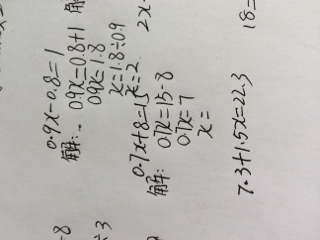 -8
÷3
0.9x-0.8=1
解: 09x=0.8+1
09x=1.8
x=1.8÷0.9
x=2
0.7x+8=15
解: 0.7x=15-8
0.7x=7
x=
7.3+1.5x=22.3
解
2x-
18=